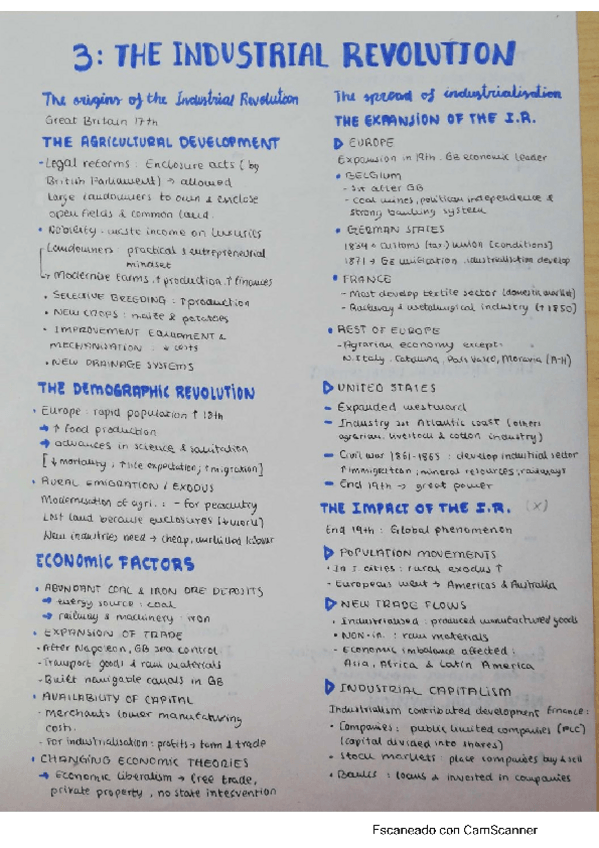 3: THE INDUSTRIAL REVOLUTION
The origins of the Industrial Revolution
Great Britain 17th
THE AGRICULTURAL DEVELOPMENT
- Legal reforms: Enclosure acts (by
British Parliament) → allowed
large landowners to own & enclose
open fields & common land.
• Nobility: waste income on luxuries
Landowners: practical & entrepreneurial
mindset
→ Modernise farms, ↑ production, ↑ finances
• SELECTIVE BREEDING: ↑ production
• NEW CROPS: maize & potatoes
• IMPROVEMENT EQUIPMENT &
MECHANISATION: ↓ costs
• NEW DRAINAGE SYSTEMS
THE DEMOGRAPHIC REVOLUTION
• Europe: rapid population ↑ 18th
→ ↑ food production
→ advances in science & sanitation
[↓ mortality, ↑ life expectation, ↑ migration]
• RURAL EMIGRATION / EXODUS
Modernisation of agri.: - for peasantry
Lost land because enclosures (↓work)
New industries need → cheap, unskilled labour
ECONOMIC FACTORS
• ABUNDANT COAL & IRON ORE DEPOSITS
→ energy source: coal
→ railway & machinery: iron
• EXPANSION OF TRADE
- After Napoleon, GB sea control
- Transport goods & raw materials
- Built navigable canals in GB
• AVAILABILITY OF CAPITAL
- Merchants lower manufacturing
costs.
- For industrialisation: profits → farm & trade
• CHANGING ECONOMIC THEORIES
→ Economic liberalism → free trade,
private property, no state intervention
The spread of industrialisation
THE EXPANSION OF THE I.R.
▷ EUROPE
Expansion in 19th. GB economic leader
• BELGIUM
- 1st after GB
- coal mines, political independence &
strong banking system
• GERMAN STATES
1834 → Customs (tax) union [conditions]
1871 → GE unification, industrialisation develop
• FRANCE
- Most develop textile sector (domestic market)
- Railway & metallurgical industry (↑ 1850)
• REST OF EUROPE
- Agrarian economy except:
N. Italy, Cataluña, País Vasco, Moravia (A-H)
▷ UNITED STATES
- Expanded westward
- Industry Atlantic coast (others
agrarian, livestock & cotton industry)
- Civil war 1861-1865: develop industrial sector
↑ immigration, mineral resources, railways
- End 19th → great power
THE IMPACT OF THE I.R. (x)
End 19th: Global phenomenon
▷ POPULATION MOVEMENTS
• In I. cities: rural exodus ↑
- Europeans went → Americas & Australia
▷ NEW TRADE FLOWS
• Industrialised: produced manufactured goods
• NON-in.: raw materials
- Economic imbalance affected:
Asia, Africa & Latin America
▷ INDUSTRIAL CAPITALISM
Industrialism contributed development finance:
• Companies: public limited companies (PLC)
(capital divided into shares)
• Stock markets: place companies buy & sell
• Banks: loans & invested in companies
Escaneado con CamScanner